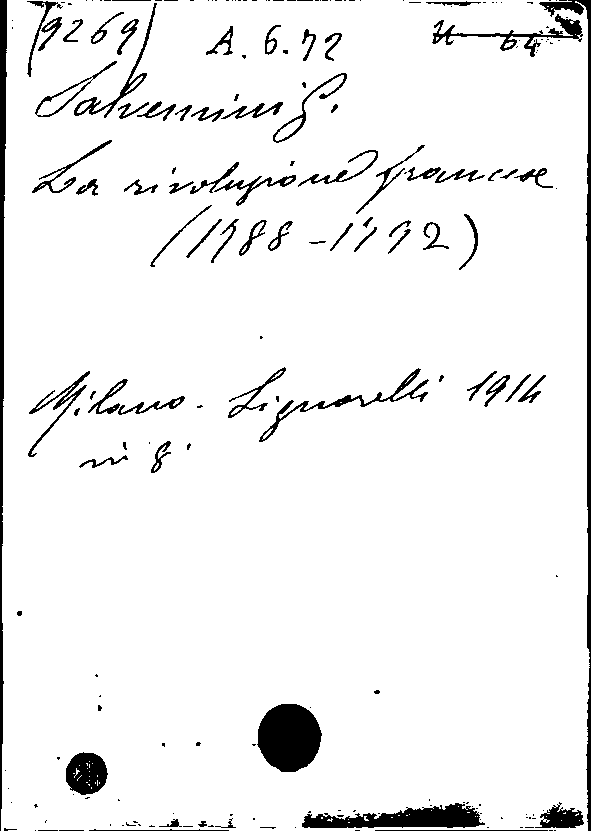 (9269) A.6.72 U 64
Salvemini G.
La rivoluzione francese
(1788-1792)
Milano - Signorelli 1914
in 8°